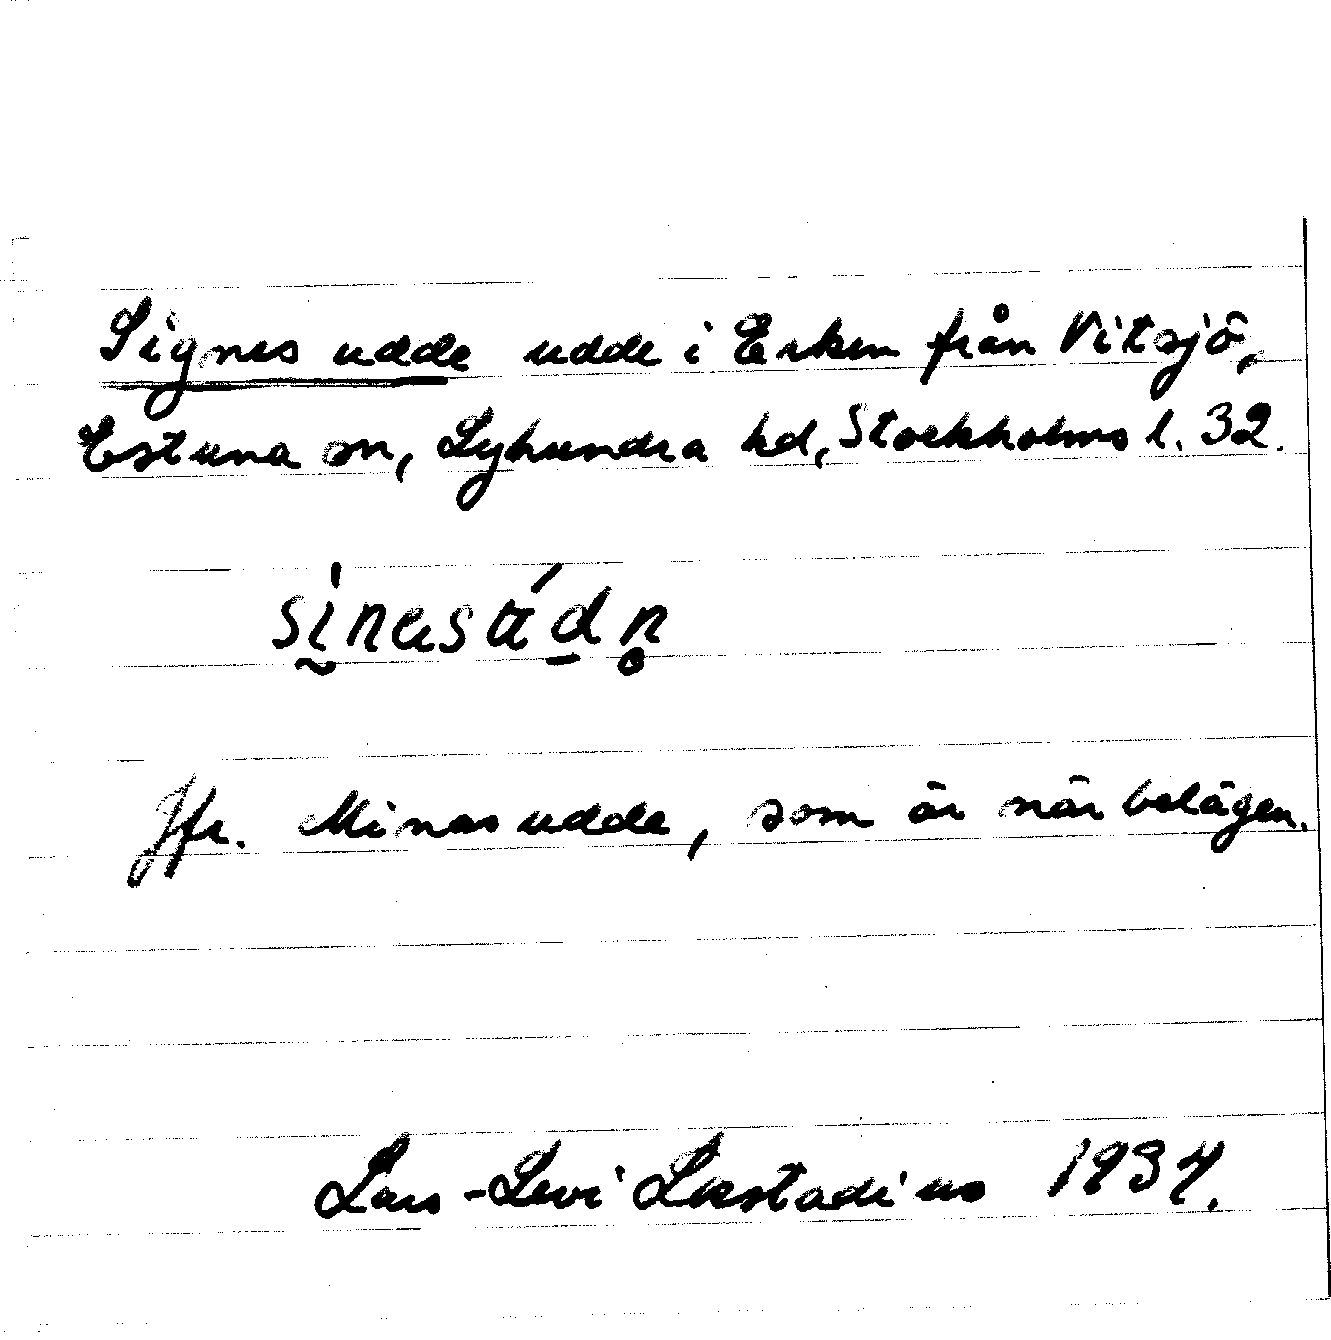 Signes udde udde i Erken från Vitsjö,
Estuna sn, Lyhundra hd, Stockholms l. 32.
Jfr. Minas udde, som är när belägen.
Lars-Levi Læstadius 1934.